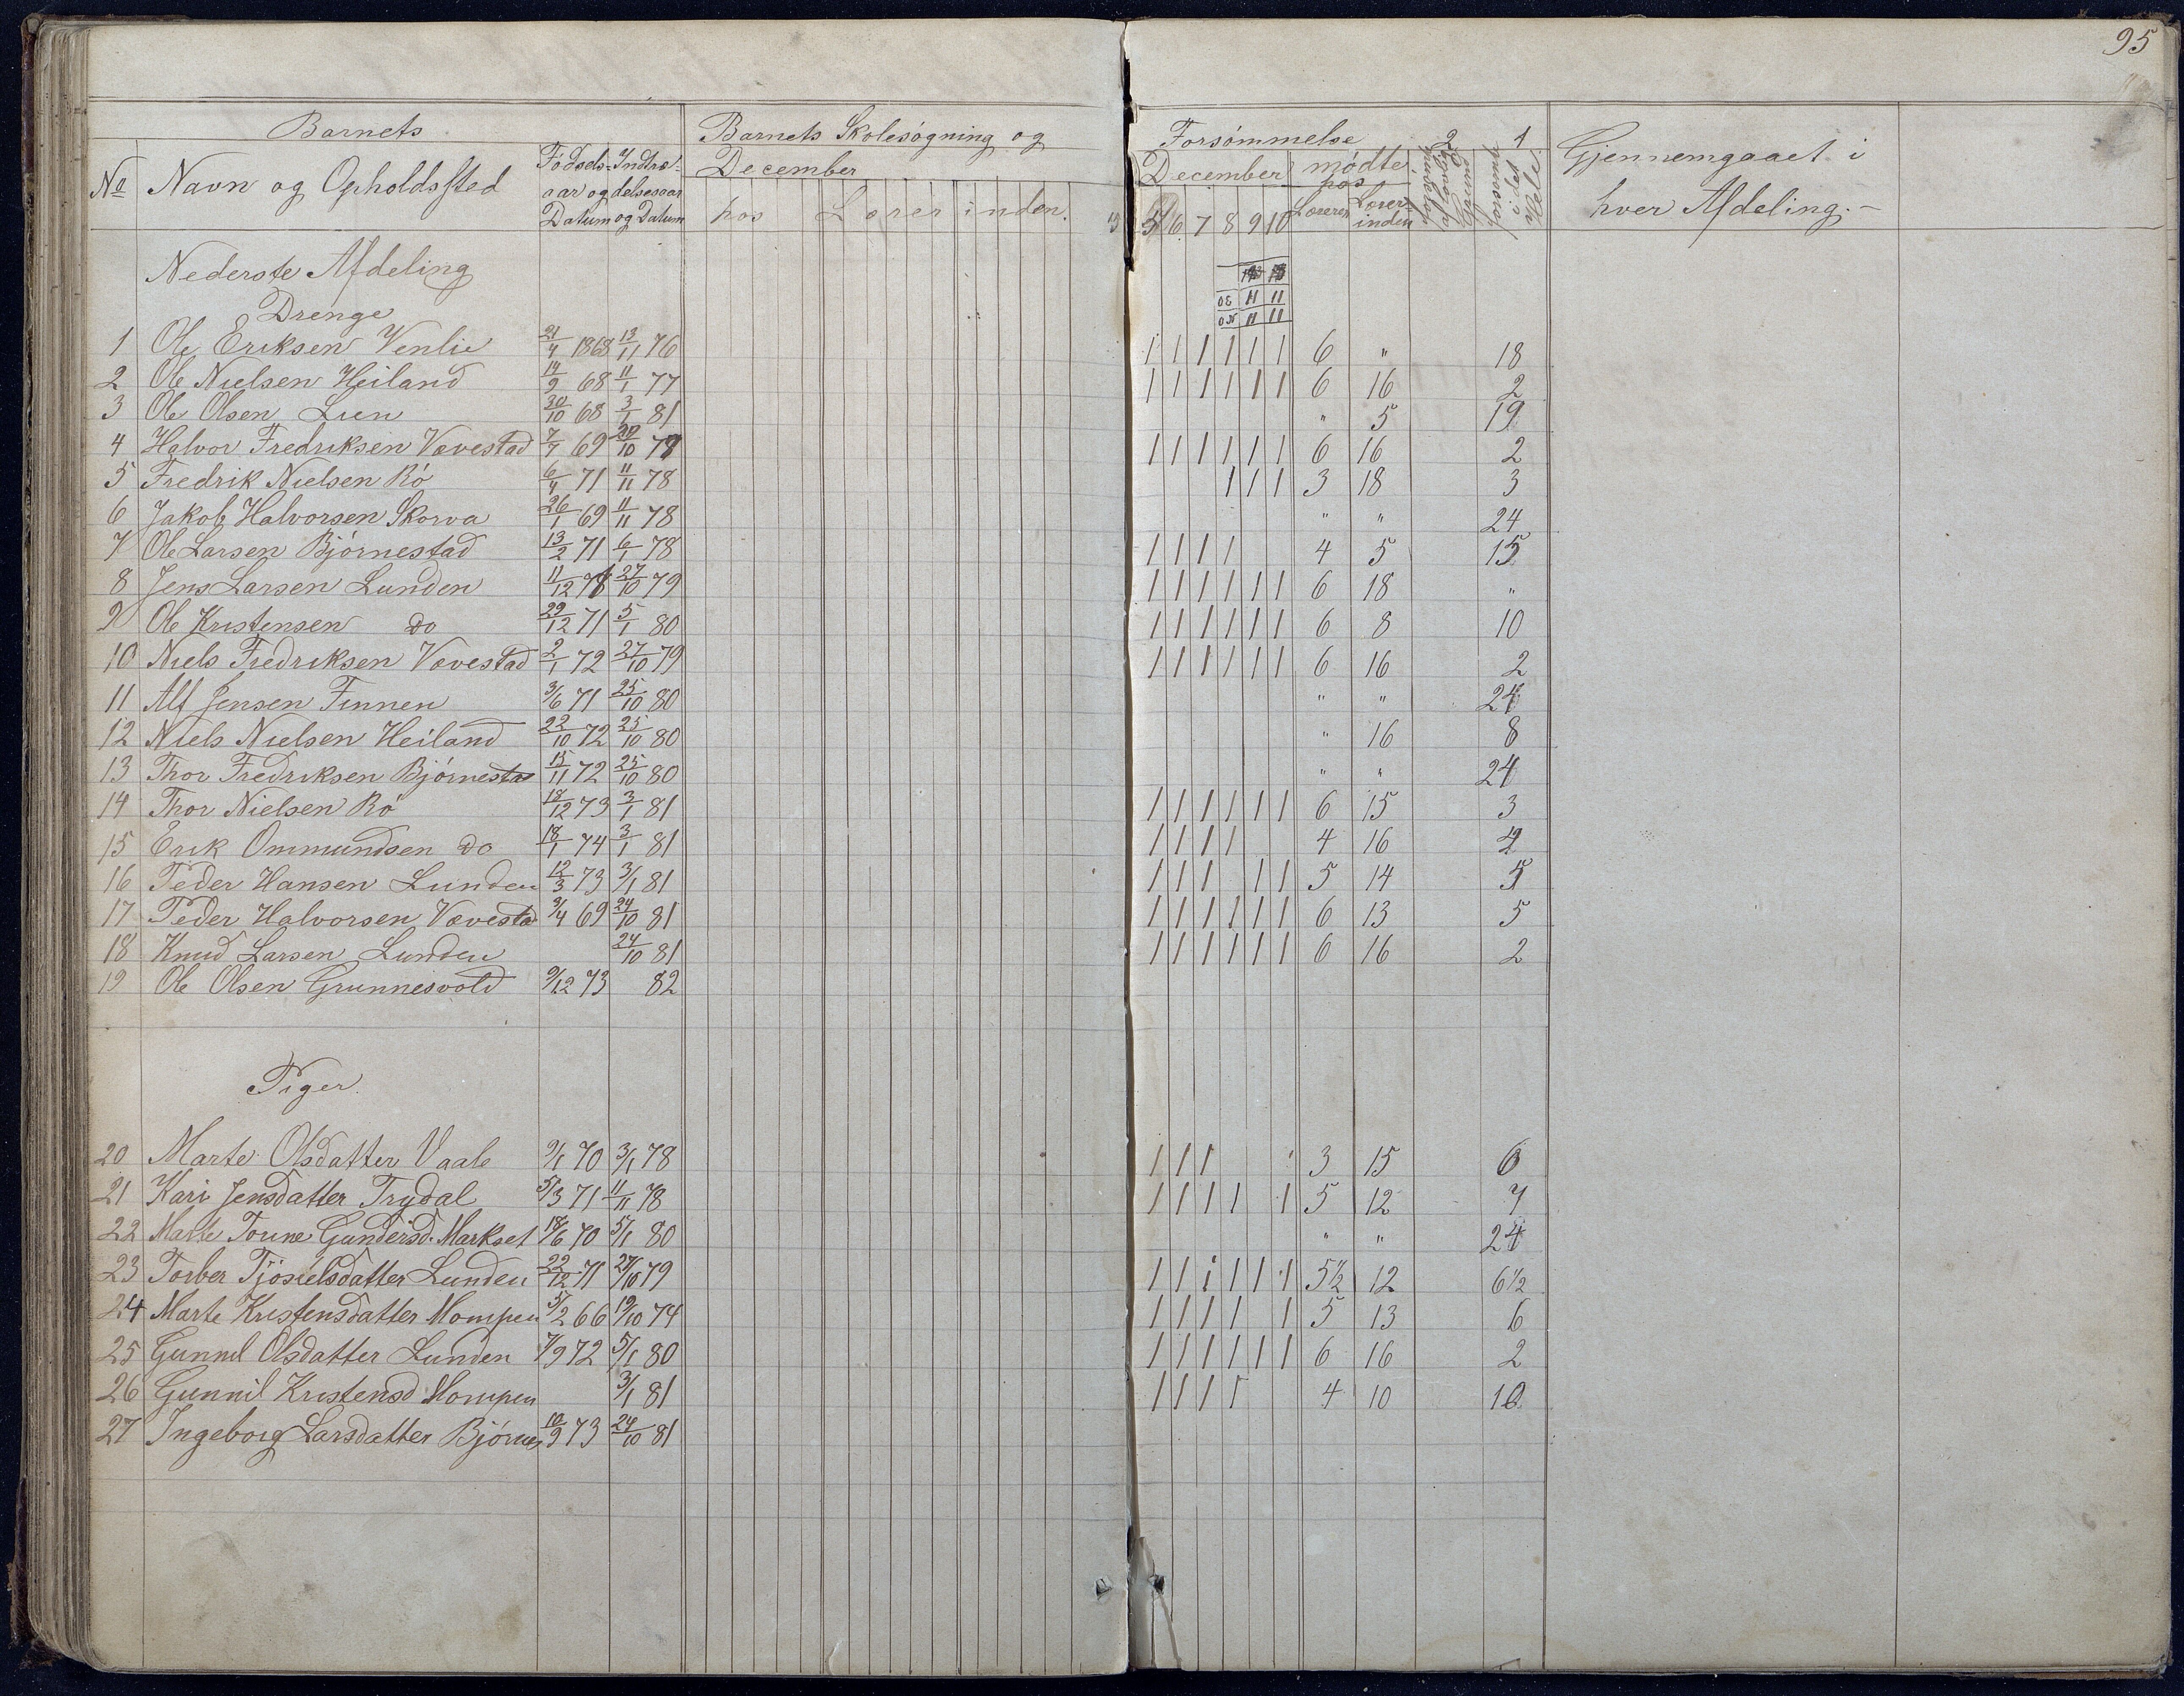 95
Barnets Barnets Skolesøgning og Forsømmelse 2 1 Gjennemgaaet i
No Navn og Opholdssted Fødsels- Indtræ- December December mødte hos forsømt i det Hele hver Afdeling.-
aar og delsesaar
Datum og Datum hos Lærerinden. 5 6 7 8 9 10 Læreren Lærer-inden
Nederste Afdeling
Drenge
1 Ole Eriksen Venlie 21/4 1868 13/11 76 1 1 1 1 1 1 6 " 18
2 Ole Nielsen Heiland 14/9 68 11/1 77 1 1 1 1 1 1 6 16 2
3 Ole Olsen Lien 30/10 68 3/1 81 " 5 19
4 Halvor Fredriksen Vævestad 7/7 69 10 79 1 1 1 1 1 1 6 16 2
5 Fredrik Nielsen Rø 6/4 71 11/11 78 1 1 1 3 18 3
6 Jakob Halvorsen Skorva 26/1 69 11/11 78 " " 24
7 Ole Larsen Bjørnestad 13/2 71 6/1 78 1 1 1 1 4 5 15
8 Jens Larsen Lunden 11/12 71 27/10 79 1 1 1 1 1 1 6 18 "
9 Ole Kristensen do 29/12 71 5/1 80 1 1 1 1 1 1 6 8 10
10 Niels Fredriksen Vævestad 2/1 72 27/10 79 1 1 1 1 1 1 6 16 2
11 Alf Jensen Finnen 3/6 71 25/10 80 " " 24
12 Niels Nielsen Heiland 22/10 72 25/10 80 " 16 8
13 Thor Fredriksen Bjørnestad 15/11 72 25/10 80 " " 24
14 Thor Nielsen Rø 18/12 73 3/1 81 1 1 1 1 1 1 6 15 3
15 Erik Ommundsen do 18/1 74 3/1 81 1 1 1 1 4 16
16 Peder Hansen Lunden 12/3 73 3/1 81 1 1 1 1 1 5 14 5
17 Peder Halvorsen Vævestad 3/4 69 24/10 81 1 1 1 1 1 1 6 13 5
18 Knud Larsen Lunden 24/10 81 1 1 1 1 1 1 6 16 2
19 Ole Olsen Grunnesvold 9/12 73 82
Piger
20 Marte Olsdatter Vaale 9/1 70 3/1 78 1 1 1 3 15 6
21 Kari Jensdatter Trydal 5/3 71 11/11 78 1 1 1 1 1 5 12 7
22 Marte Toune Gundersd. Markset 18/6 70 5/1 80 " " 24
23 Torber Tjøstelsdatter Lunden 22/12 71 27/10 79 1 1 1 1 1 1 5½ 12 6½
24 Marte Kristensdatter Mompen 5/2 66 19/10 74 1 1 1 1 1 5 13 6
25 Gunnil Olsdatter Lunden 7/9 72 5/1 80 1 1 1 1 1 1 6 16 2
26 Gunnil Kristensd Mompen 3/1 81 1 1 1 1 4 10 10
27 Ingeborg Larsdatter Bjørnes 10/9 73 24/10 81